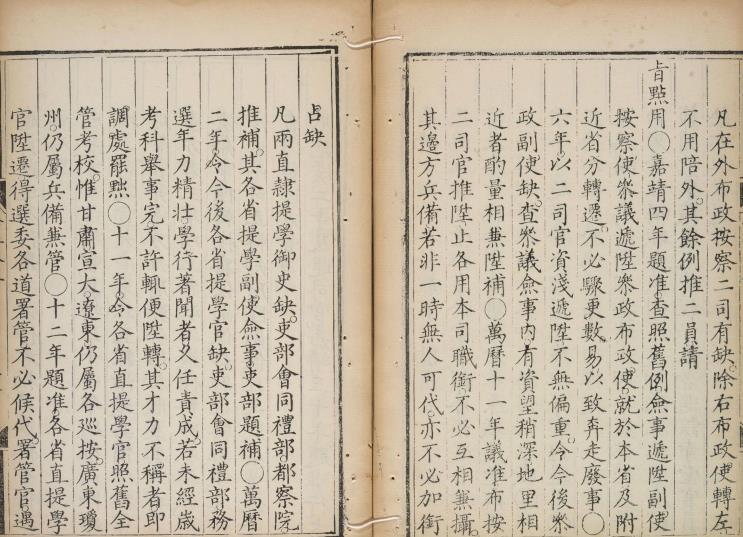 凡在外布政按察二司有缺除右布政使轉左
不用陪外其餘例推二員請
旨點用○嘉靖四年題准查照舊例僉事遞陞副使
按察使叅議遞陞叅政布政使就於本省及附
近省分轉遷不必驟更數易以致奔走廢事○
六年以二司官資淺遞陞不無偏重令今後叅
政副使缺查叅議僉事内有資望稍深地里相
近者酌量相兼陞補○萬曆十一年議准布按
二司官推陞止各用本司職銜不必互相兼攝
其邊方兵備若非一時無人可代亦不必加銜
占缺
凡兩直隷提學御史缺吏部會同禮部都察院
推補其各省提學副使僉事吏部題補○萬曆
二年令今後各省提學官缺吏部會同禮部務
選年力精壯學行著聞者久任責成若未經歲
考科舉事完不許輒便陞轉其才力不稱者即
調處罷黜○十一年令各省直提學官照舊全
管考校惟甘肅宣大遼東仍屬各巡按廣東瓊
州仍屬兵備兼管○十二年題准各省直提學
官陞遷得選委各道署管不必候代署管官遇